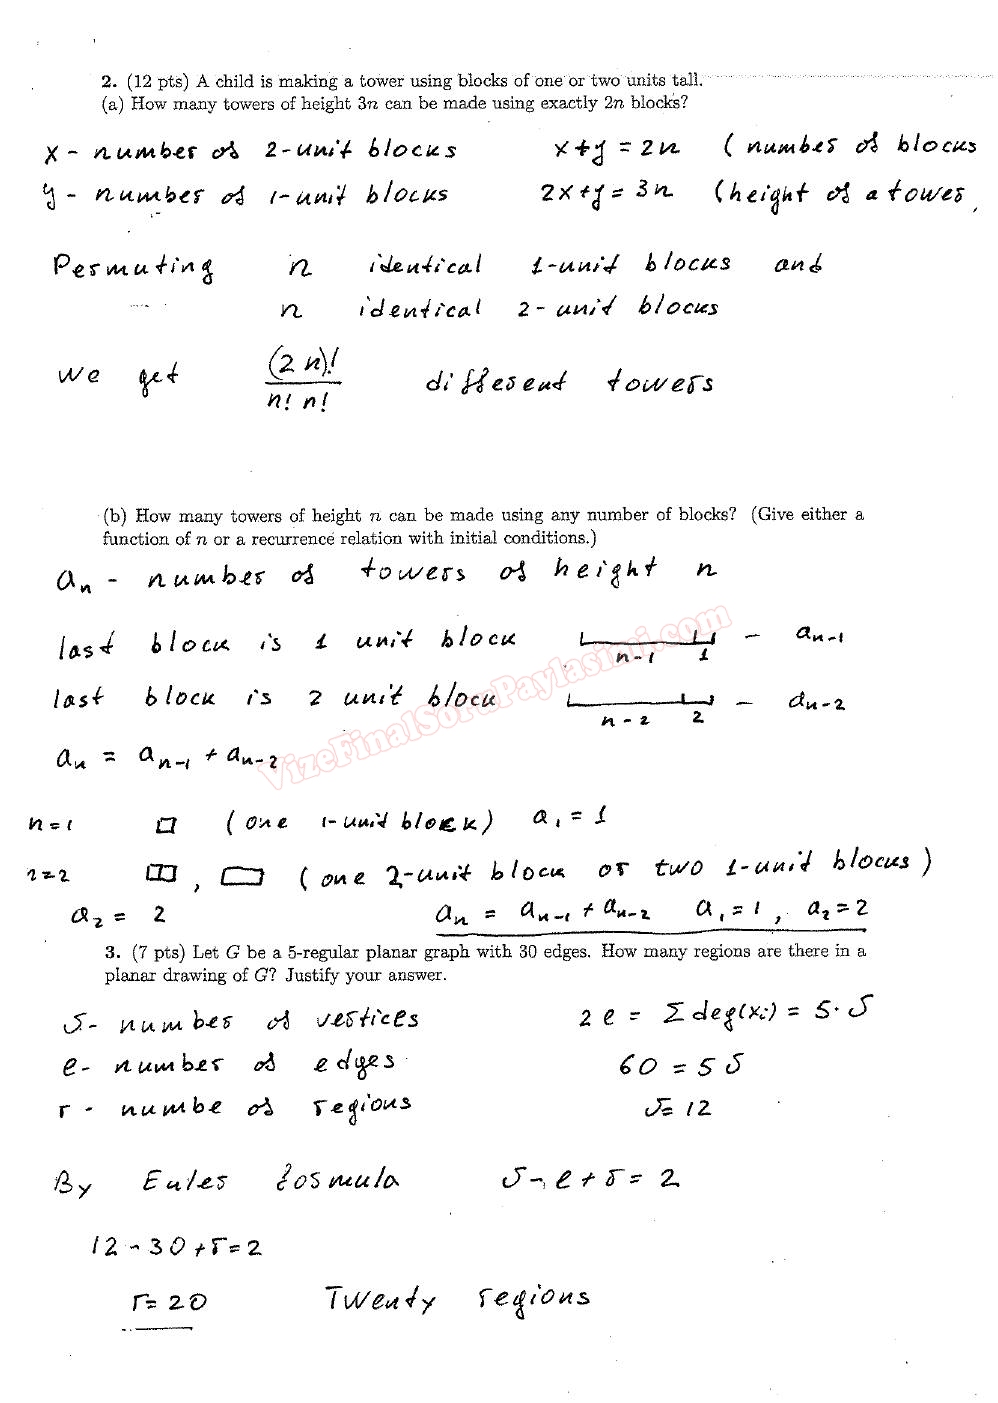 2. (12 pts) A child is making a tower using blocks of one or two units tall.
(a) How many towers of height 3n can be made using exactly 2n blocks?
x - number of 2-unit blocks x+y = 2n (number of blocks
y - number of 1-unit blocks 2x+y = 3n (height of a tower,
Permuting n identical 1-unit blocks and
n identical 2-unit blocks
We get (2n)! / n! n! different towers
(b) How many towers of height n can be made using any number of blocks? (Give either a
function of n or a recurrence relation with initial conditions.)
an - number of towers of height n
last block is 1 unit block n-1 1 - an-1
last block is 2 unit block n-2 2 - an-2
an = an-1 + an-2
n=1 (one 1-unit block) a1 = 1
n=2 , (one 2-unit block or two 1-unit blocks)
a2 = 2 an = an-1 + an-2 a1=1, a2=2
3. (7 pts) Let G be a 5-regular planar graph with 30 edges. How many regions are there in a
planar drawing of G? Justify your answer.
v- number of vertices 2e = Σ deg(xi) = 5·v
e- number of edges 60 = 5v
r - numbe of regions v=12
By Euler formula v-e+r=2
12-30+r=2
r=20 Twenty regions
VizeFinalSoruPaylasimi.com